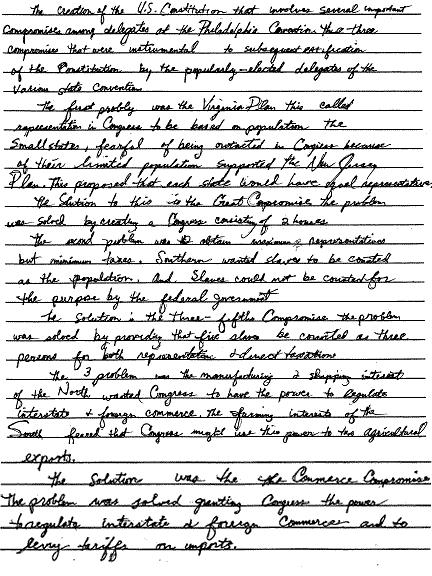 The creation of the U.S. Constitution that involves several important
compromise among delegates at the Philadelphia Convention. The three
compromises that were instrumental to subsequent ratification
of the Constitution by the popularly-elected delegates of the
various state convention
The first probly was the Virginia Plan this called
representation in Congress to be based on population the
Small states, fearful of being outvoted in Congress because
of their limited population supported the New Jersey
Plan. This proposed that each state would have equal representative.
The Solution to this is the Great Compromise the problem
was solved by creating a Congress consisting of 2 houses.
The second problem was to obtain maximum representatives
but minimum taxes. Southern wanted slaves to be counted
as the population. And Slaves could not be counted for
the purpose by the federal government
The solution is the Three-fifths Compromise the problem
was solved by providing that five slaves be counted as three
persons for both representation & direct taxation
The 3 problem was the manufacturing & shipping interest
of the North wanted Congress to have the power to regulate
interstate & foreign commerce. The farming interests of the
South feared that Congress might use this power to tax agricultural
exports.
The Solution was the Commerce Compromise
The problem was solved granting Congress the power
to regulate interstate & foreign Commerce and to
levy tariffs on imports.